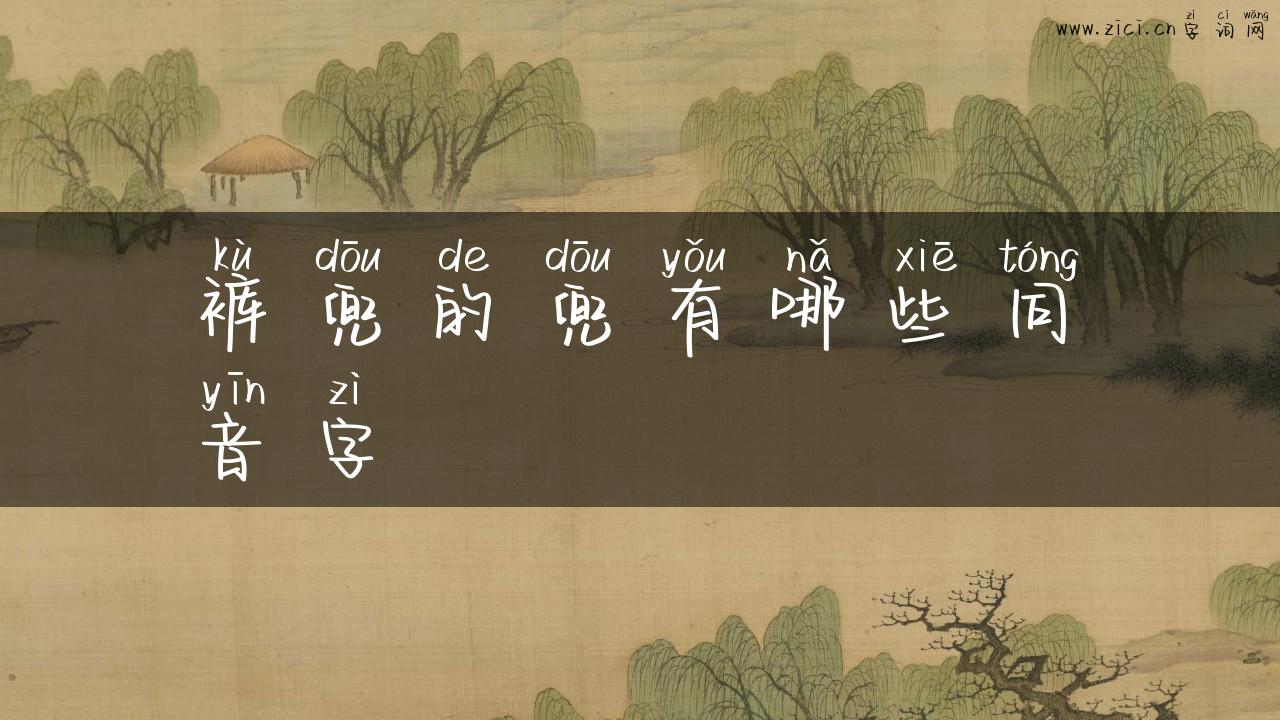 zì cí wǎng
www.zici.cn 字词网
kù dōu de dōu yǒu nǎ xiē tóng
裤兜的兜有哪些同
yīn zì
音字